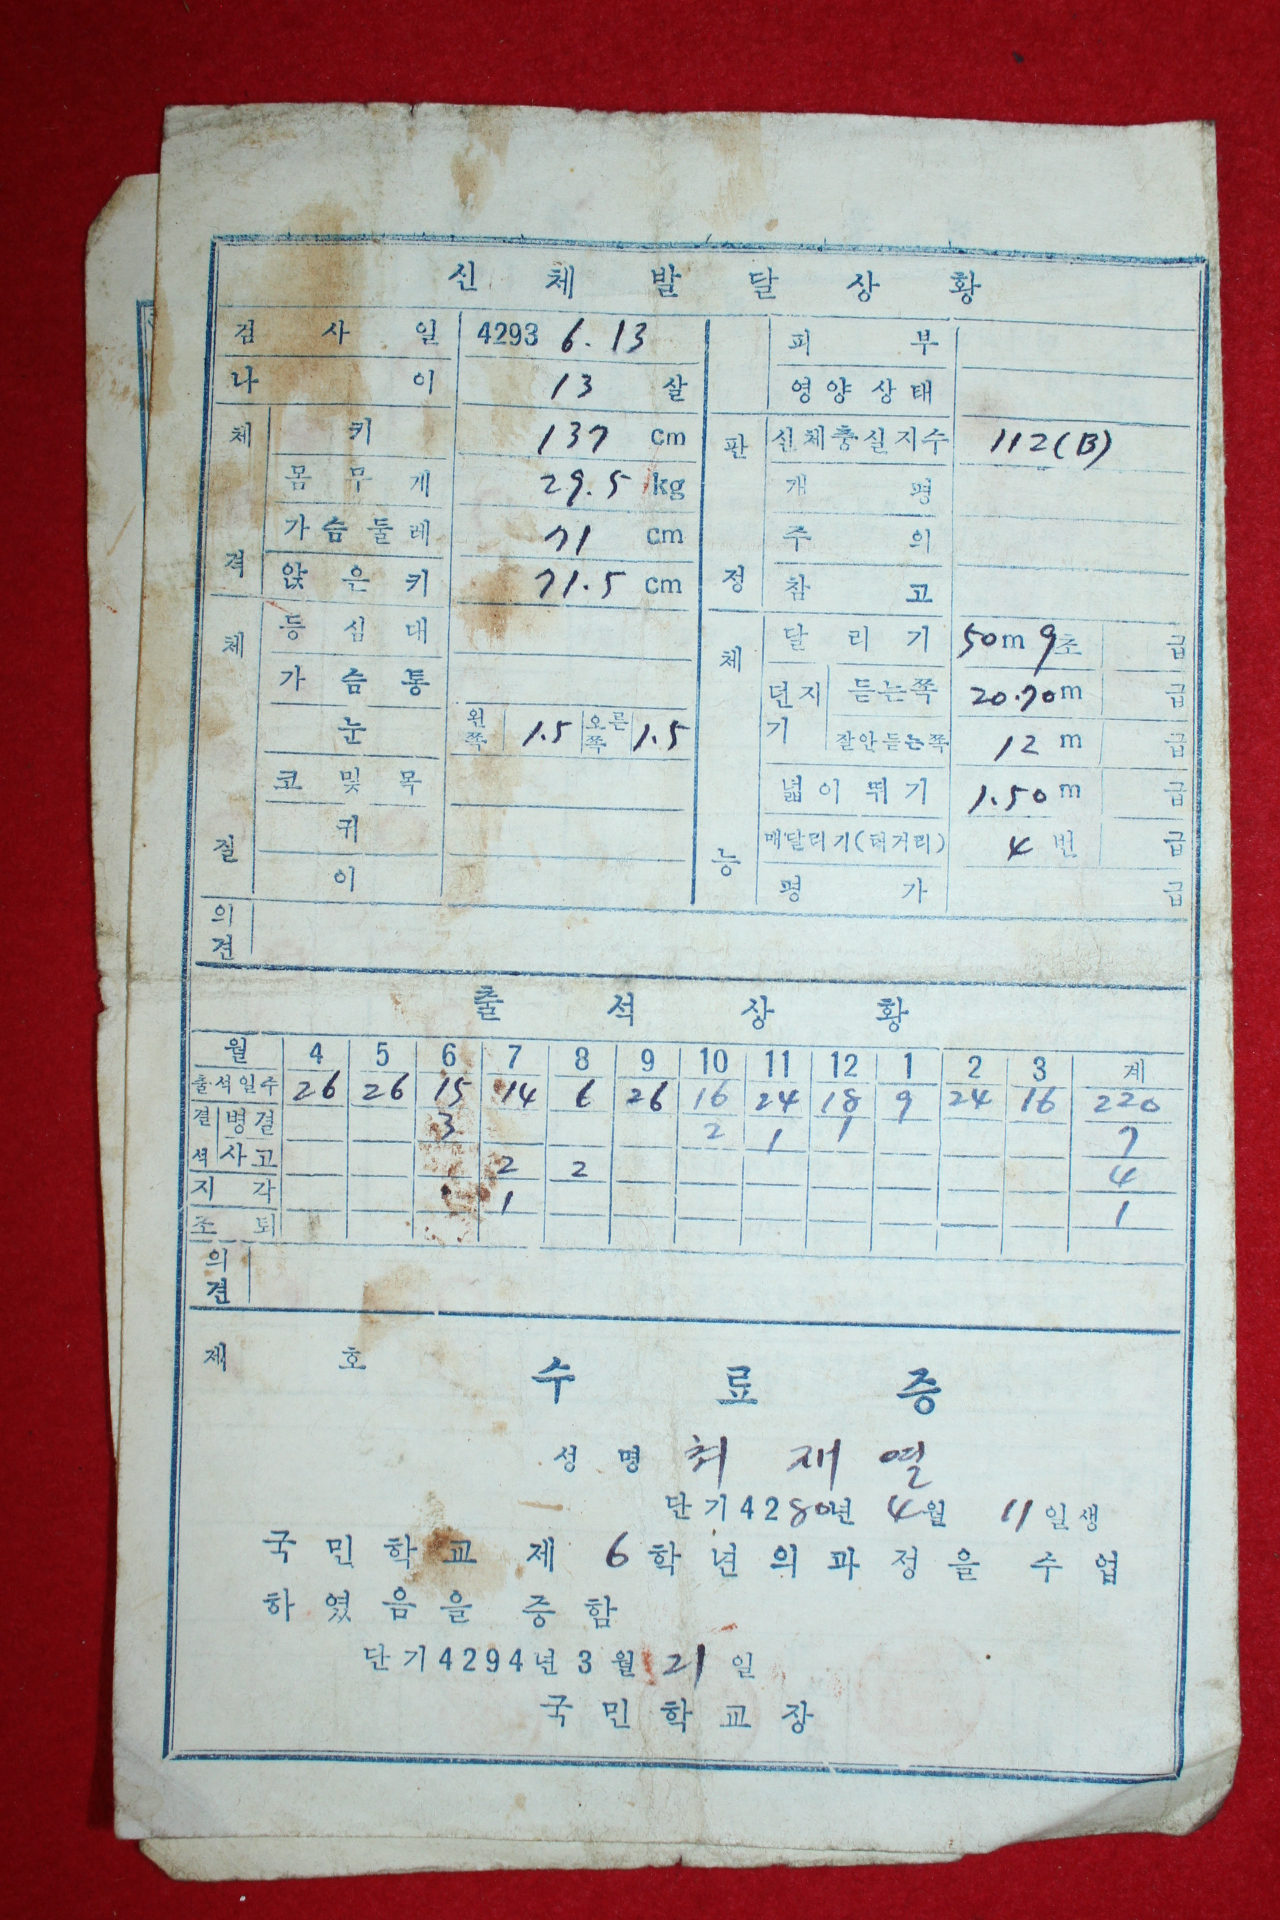 신체발달상황
검사일 4293 6.13 피부
나이 13 살 영양상태
체격 키 137 cm 판정 신체충실지수 112(B)
몸무게 29.5 kg 개평
가슴둘레 71 cm 주의
앉은키 71.5 cm 참고
체질 등심대 체능 달리기 50m 9초 급
가슴통 던지기 듣는쪽 20.70m 급
눈 왼쪽 1.5 오른쪽 1.5 잘안듣는쪽 12 m 급
코및목 넓이뛰기 1.50 m 급
귀 매달리기(턱거리) 4 번 급
이 평가 급
의견
출석상황
월 4 5 6 7 8 9 10 11 12 1 2 3 계
출석일수 26 26 15 14 6 26 16 24 18 9 24 16 220
결석 병결 3 2 1 1 7
사고 2 2 4
지각 1 1
조퇴
의견
제 호 수료증
성명 최재열
단기4280년 4월 11일생
국민학교 제 6학년의과정을 수업
하였음을 증함
단기4294년3월 21일
국민학교장